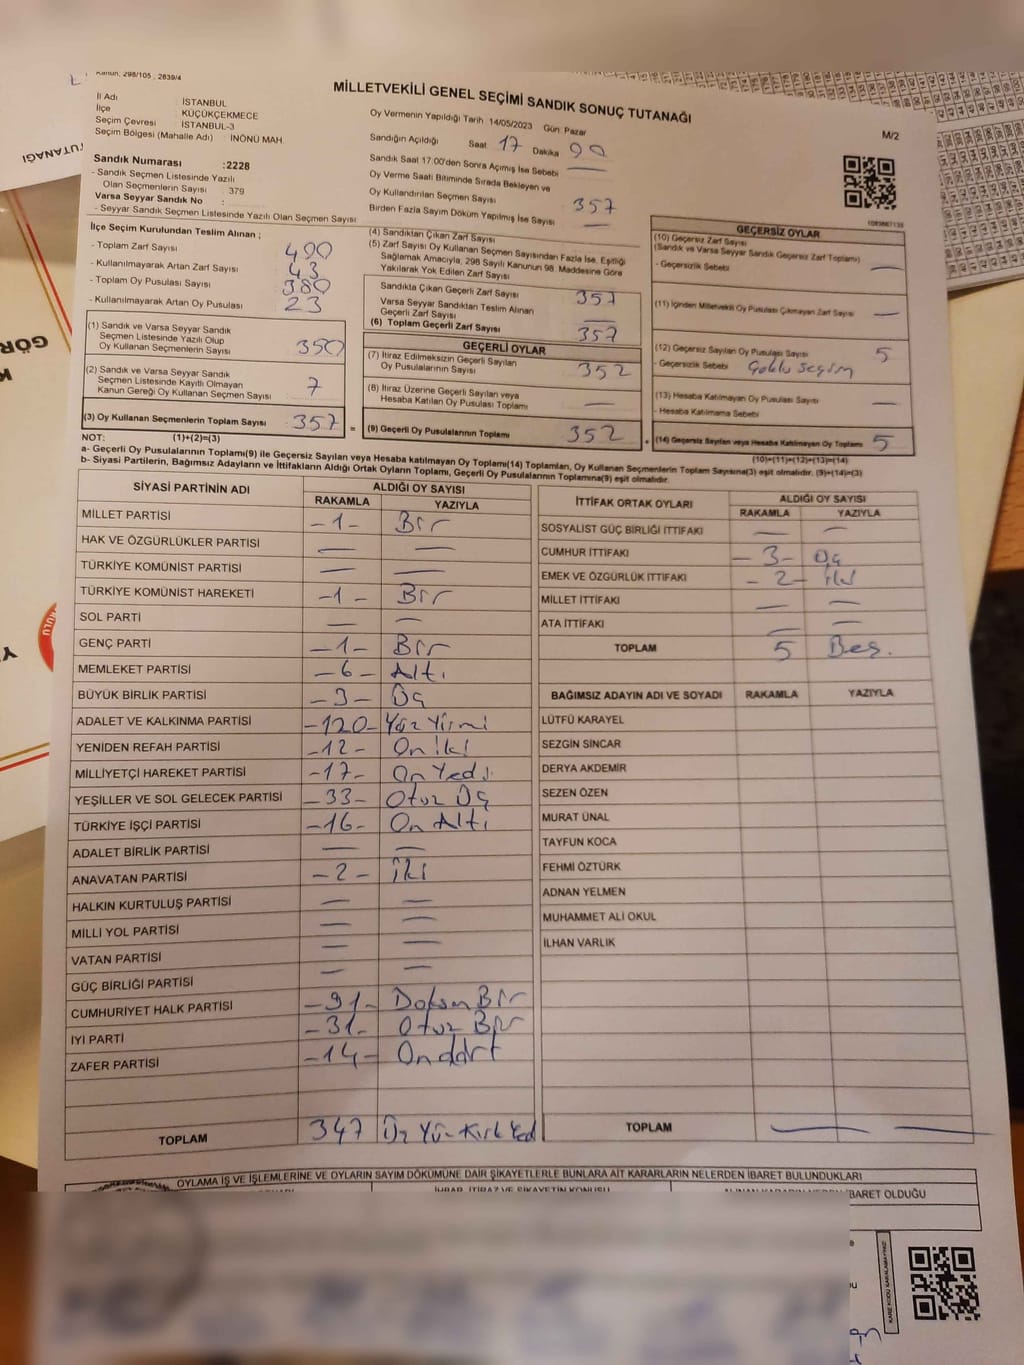 Kanun: 298/105 , 2839/4
MİLLETVEKİLİ GENEL SEÇİMİ SANDIK SONUÇ TUTANAĞI
M/2
İl Adı : İSTANBUL
İlçe : KÜÇÜKÇEKMECE
Seçim Çevresi : İSTANBUL-3
Seçim Bölgesi (Mahalle Adı) : İNÖNÜ MAH
Oy Vermenin Yapıldığı Tarih 14/05/2023 Gün: Pazar
Sandığın Açıldığı Saat 17 Dakika 00
Sandık Saat 17:00'den Sonra Açımış İse Sebebi —
Oy Verme Saati Bitiminde Sırada Bekleyen ve
Oy Kullandırılan Seçmen Sayısı 357
Birden Fazla Sayım Döküm Yapılmış İse Sayısı —
Sandık Numarası :2228
- Sandık Seçmen Listesinde Yazılı
Olan Seçmenlerin Sayısı : 379
Varsa Seyyar Sandık No :
- Seyyar Sandık Seçmen Listesinde Yazılı Olan Seçmen Sayısı :
İlçe Seçim Kurulundan Teslim Alınan ;
- Toplam Zarf Sayısı 400
- Kullanılmayarak Artan Zarf Sayısı 43
- Toplam Oy Pusulası Sayısı 380
- Kullanılmayarak Artan Oy Pusulası 23
(1) Sandık ve Varsa Seyyar Sandık
Seçmen Listesinde Yazılı Olup
Oy Kullanan Seçmenlerin Sayısı 350
(2) Sandık ve Varsa Seyyar Sandık
Seçmen Listesinde Kayıtlı Olmayan
Kanun Gereği Oy Kullanan Seçmen Sayısı 7
(3) Oy Kullanan Seçmenlerin Toplam Sayısı 357
(4) Sandıktan Çıkan Zarf Sayısı
(5) Zarf Sayısı Oy Kullanan Seçmen Sayısından Fazla İse, Eşitliği
Sağlamak Amacıyla, 298 Sayılı Kanunun 98. Maddesine Göre
Yakılarak Yok Edilen Zarf Sayısı
Sandıkta Çıkan Geçerli Zarf Sayısı 357
Varsa Seyyar Sandıktan Teslim Alınan
Geçerli Zarf Sayısı —
(6) Toplam Geçerli Zarf Sayısı 357
GEÇERLİ OYLAR
(7) İtiraz Edilmeksizin Geçerli Sayılan
Oy Pusulalarının Sayısı 352
(8) İtiraz Üzerine Geçerli Sayılan veya
Hesaba Katılan Oy Pusulası Toplamı —
(9) Geçerli Oy Pusulalarının Toplamı 352
GEÇERSİZ OYLAR
(10) Geçersiz Zarf Sayısı
(Sandık ve Varsa Seyyar Sandık Geçersiz Zarf Toplamı)
- Geçersizlik Sebebi —
(11) İçinden Milletvekili Oy Pusulası Çıkmayan Zarf Sayısı —
(12) Geçersiz Sayılan Oy Pusulası Sayısı 5
- Geçersizlik Sebebi Çoklu Seçim
(13) Hesaba Katılmayan Oy Pusulası Sayısı —
- Hesaba Katılmama Sebebi
(14) Geçersiz Sayılan veya Hesaba Katılmayan Oy Toplamı 5
NOT: (1)+(2)=(3)
(10)+(11)+(12)+(13)=(14)
a- Geçerli Oy Pusulalarının Toplamı(9) ile Geçersiz Sayılan veya Hesaba katılmayan Oy Toplamı(14) Toplamları, Oy Kullanan Seçmenlerin Toplam Sayısına(3) eşit olmalıdır. (9)+(14)=(3)
b- Siyasi Partilerin, Bağımsız Adayların ve İttifakların Aldığı Ortak Oyların Toplamı, Geçerli Oy Pusulalarının Toplamına(9) eşit olmalıdır.
SİYASİ PARTİNİN ADI ALDIĞI OY SAYISI
RAKAMLA YAZIYLA
MİLLET PARTİSİ -1- Bir
HAK VE ÖZGÜRLÜKLER PARTİSİ — —
TÜRKİYE KOMÜNİST PARTİSİ — —
TÜRKİYE KOMÜNİST HAREKETİ -1- Bir
SOL PARTİ — —
GENÇ PARTİ -1- Bir
MEMLEKET PARTİSİ -6- Altı
BÜYÜK BİRLİK PARTİSİ -3- Üç
ADALET VE KALKINMA PARTİSİ -120- Yüz Yirmi
YENİDEN REFAH PARTİSİ -12- On İki
MİLLİYETÇİ HAREKET PARTİSİ -17- On Yedi
YEŞİLLER VE SOL GELECEK PARTİSİ -33- Otuz Üç
TÜRKİYE İŞÇİ PARTİSİ -16- On Altı
ADALET BİRLİK PARTİSİ — —
ANAVATAN PARTİSİ -2- İki
HALKIN KURTULUŞ PARTİSİ — —
MİLLİ YOL PARTİSİ — —
VATAN PARTİSİ — —
GÜÇ BİRLİĞİ PARTİSİ — —
CUMHURİYET HALK PARTİSİ -91- Doksan Bir
İYİ PARTİ -31- Otuz Bir
ZAFER PARTİSİ -14- On dört
TOPLAM 347 Üç Yüz Kırk Yedi
İTTİFAK ORTAK OYLARI ALDIĞI OY SAYISI
RAKAMLA YAZIYLA
SOSYALİST GÜÇ BİRLİĞİ İTTİFAKI — —
CUMHUR İTTİFAKI -3- Üç
EMEK VE ÖZGÜRLÜK İTTİFAKI -2- İki
MİLLET İTTİFAKI — —
ATA İTTİFAKI — —
TOPLAM 5 Beş.
BAĞIMSIZ ADAYIN ADI VE SOYADI RAKAMLA YAZIYLA
LÜTFÜ KARAYEL
SEZGİN SİNCAR
DERYA AKDEMİR
SEZEN ÖZEN
MURAT ÜNAL
TAYFUN KOCA
FEHMİ ÖZTÜRK
ADNAN YELMEN
MUHAMMET ALİ OKUL
İLHAN VARLIK
TOPLAM — —
OYLAMA İŞ VE İŞLEMLERİNE VE OYLARIN SAYIM DÖKÜMÜNE DAİR ŞİKAYETLERLE BUNLARA AİT KARARLARIN NELERDEN İBARET BULUNDUKLARI
İHBAR, İTİRAZ VE ŞİKAYETİN KONUSU
İBARET OLDUĞU
KARE KODU KARALAMAYINIZ!